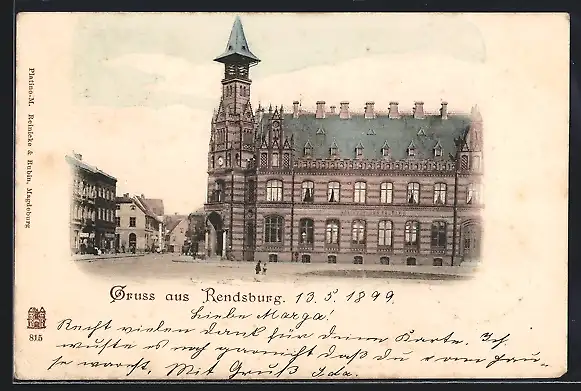 Platino.M. Reinicke & Rubin, Magdeburg
Gruss aus Rendsburg. 13. 5. 1899.
Liebe Marga!
Recht vielen Dank für deine Karte. Ich
wußte es noch garnicht daß du vom Hau-
se warst, Mit Gruß Ida.
815